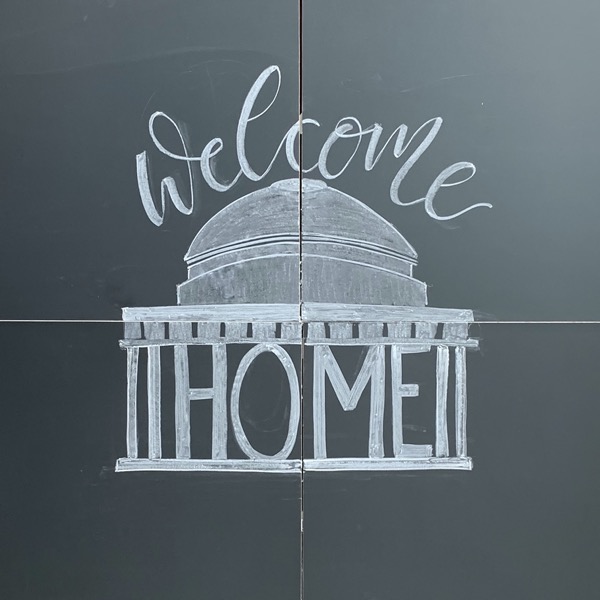 welcome
HOME